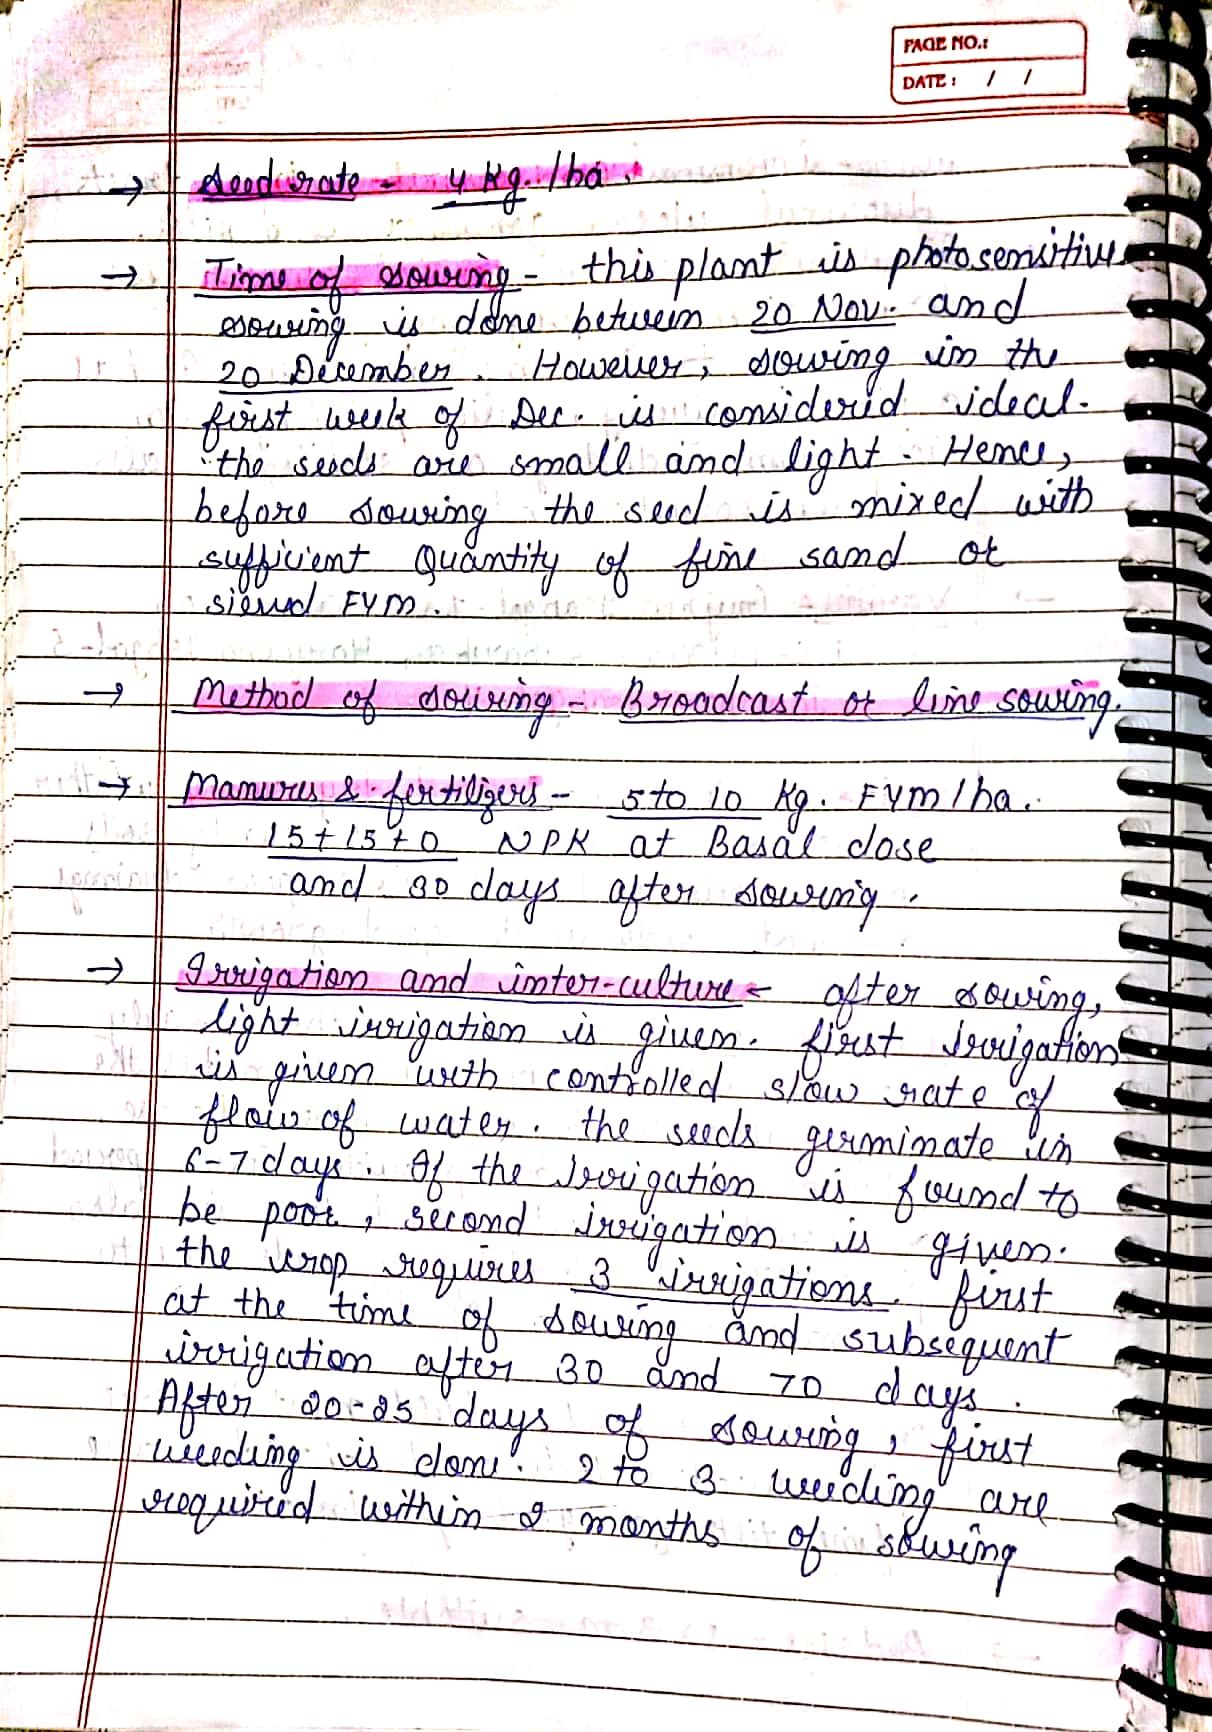 PAGE NO.:
DATE: / /
→ Seed rate - 4 Kg./ha.
→ Time of sowing - this plant is photosensitive
sowing is done between 20 Nov. and
20 December. However, sowing in the
first week of Dec. is considered ideal.
the seeds are small and light. Hence,
before sowing the seed is mixed with
sufficient Quantity of fine sand or
sieved FYM.
→ Method of sowing - Broadcast or line sowing.
→ Manures & fertilizers - 5 to 10 Kg. FYM/ha.
15+15+0 NPK at Basal dose
and 30 days after sowing.
→ Irrigation and inter-culture - after sowing,
light irrigation is given. first irrigation
is given with controlled slow rate of
flow of water. the seeds germinate in
6-7 days. If the irrigation is found to
be poor, second irrigation is given.
the crop requires 3 irrigations. first
at the time of sowing and subsequent
irrigation after 30 and 70 days.
After 20-25 days of sowing, first
weeding is done. 2 to 3 weeding are
required within 2 months of sowing